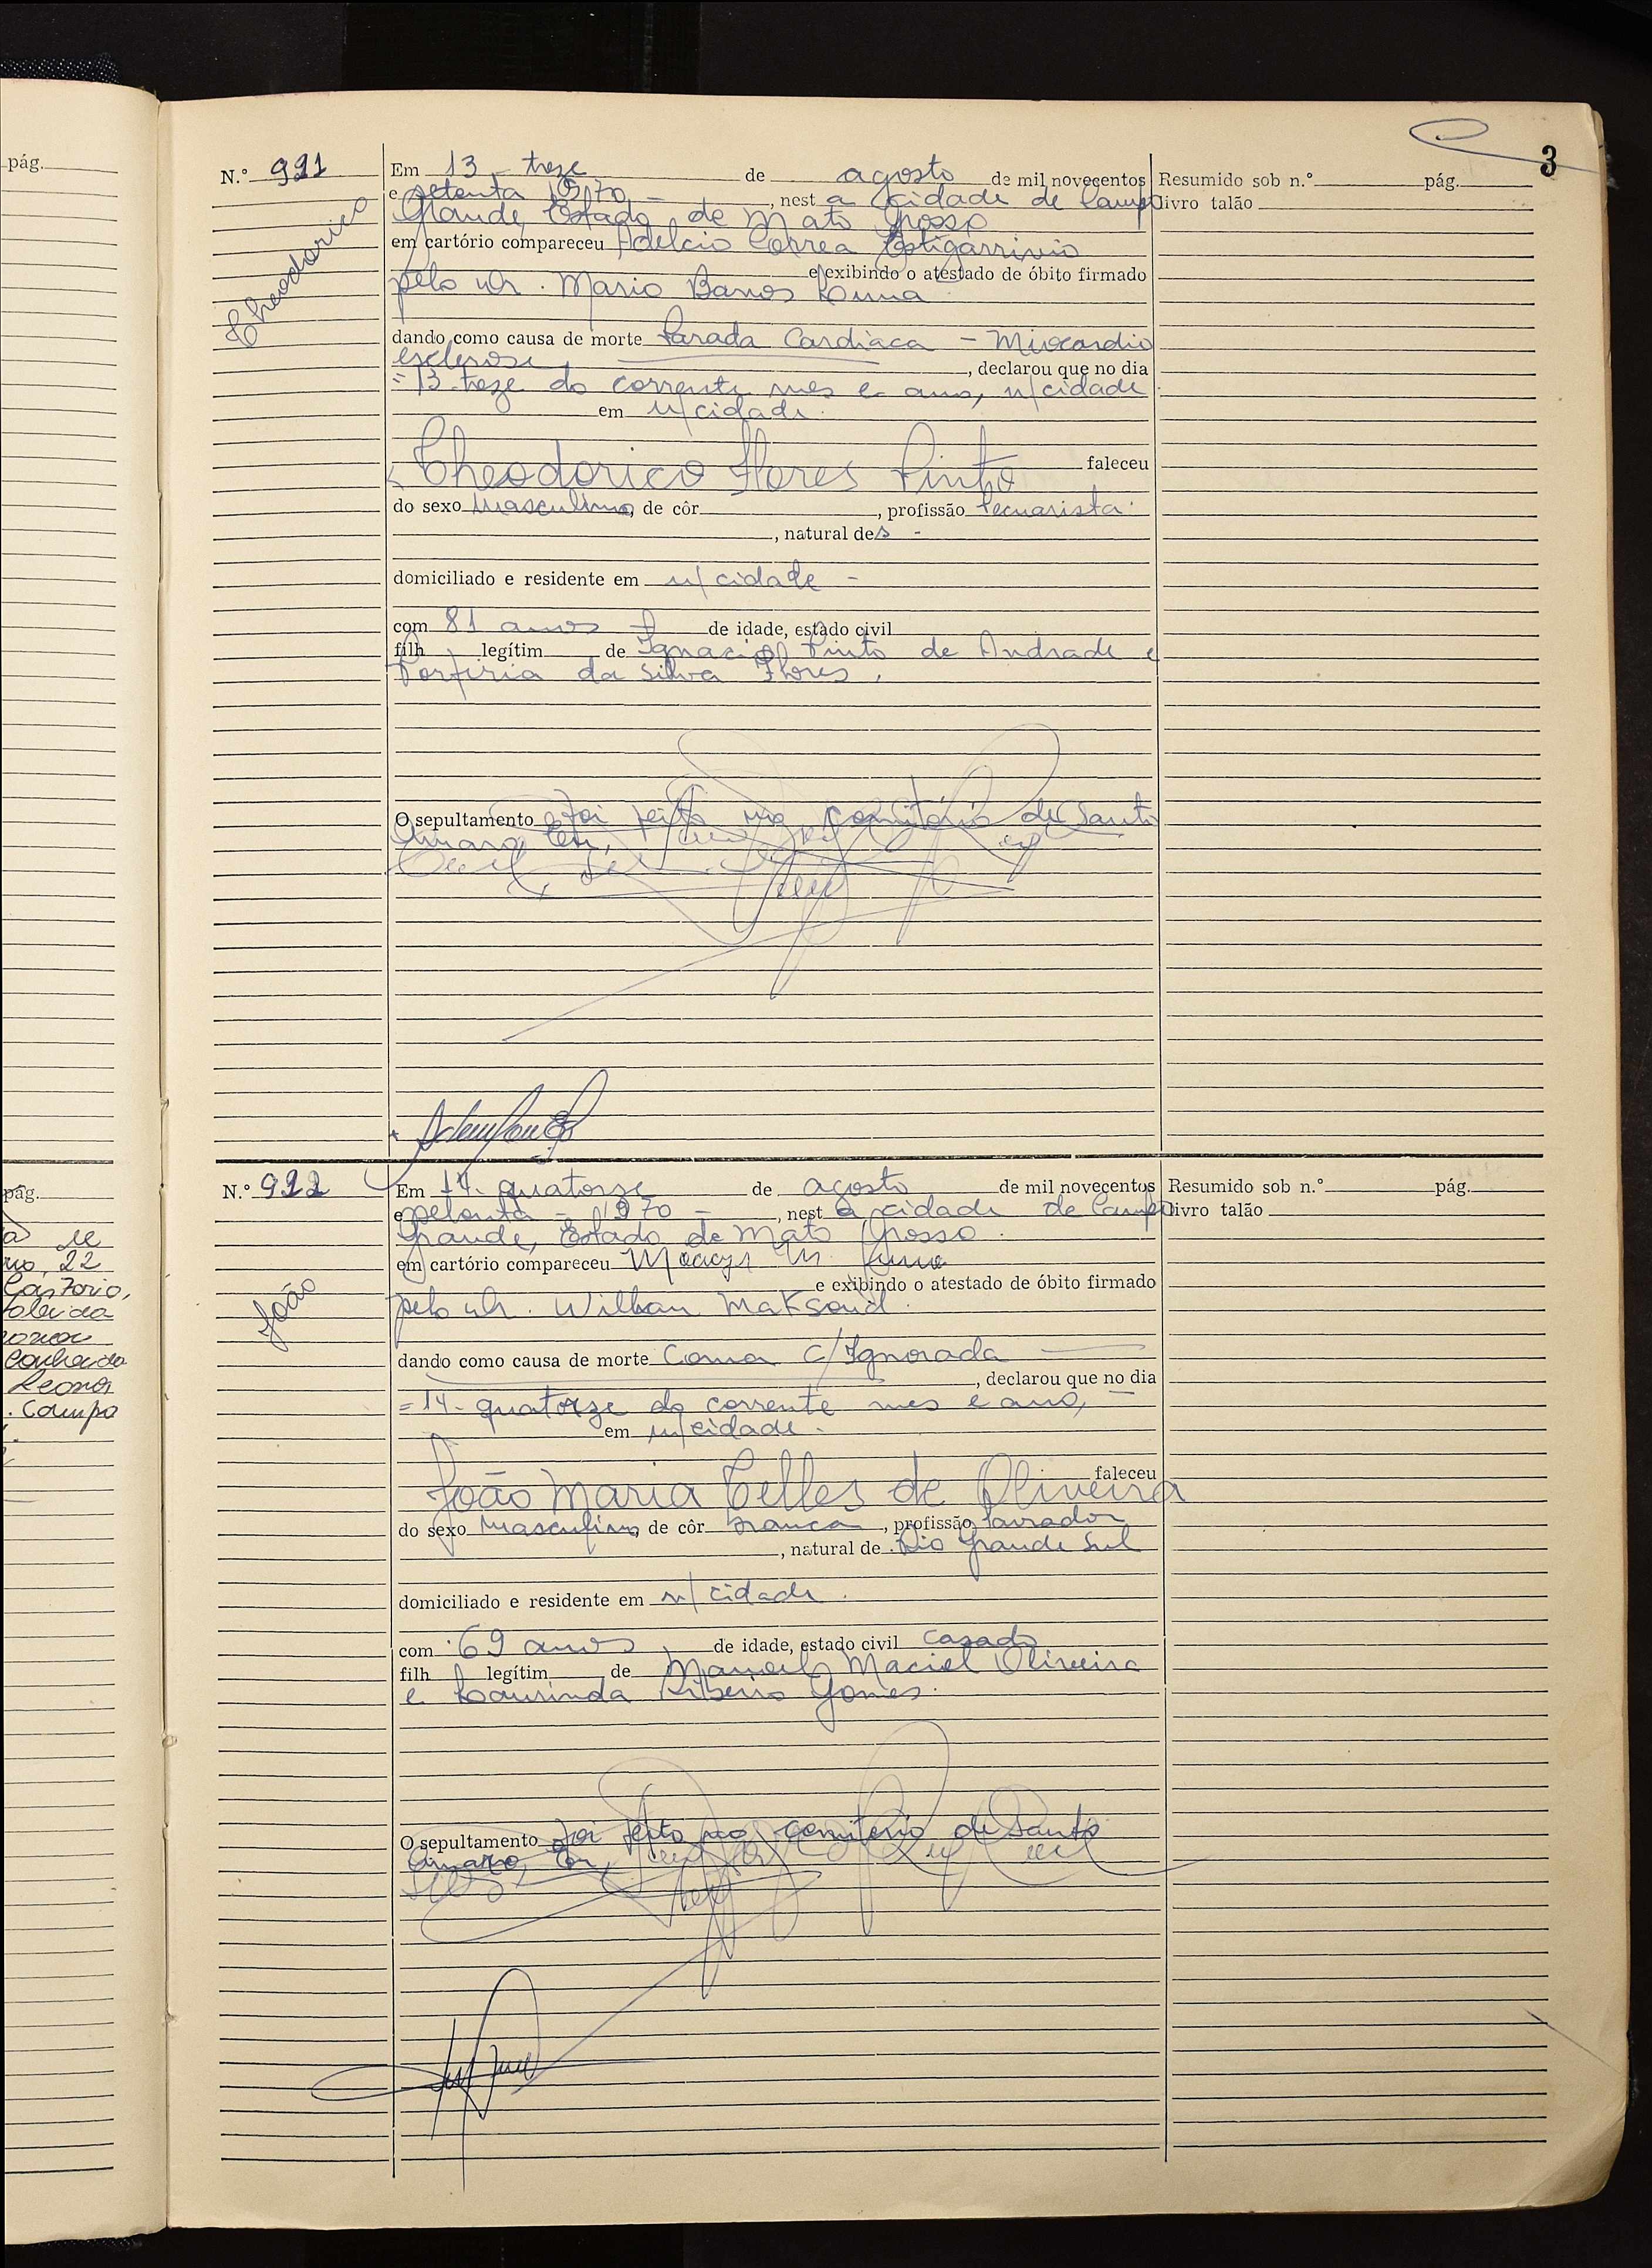 pág.
3
N.º 911
Theodorico
Em 13 - treze de agosto de mil novecentos
e setenta 1970 -, nest a cidade de Campo
Grande, Estado de Mato Grosso
em cartório compareceu Adelcio Correa Estigarrivio
e exibindo o atestado de óbito firmado
pelo dr. Mario Barros Lima
dando como causa de morte Parada Cardiaca - Miocardio
esclerose, declarou que no dia
=13-treze do corrente mes e ano, n/cidade
em n/cidade.
Theodorico Flores Pinto faleceu
do sexo masculino, de côr, profissão Pecuarista.
, natural de
domiciliado e residente em n/ cidade -
com 81 anos de idade, estado civil
filh legítim de Ignacio Pinto de Andrade e
Porfiria da Silva Flores,
O sepultamento foi feito no cemitério de Santo
Amaro Eu,
Resumido sob n.º pág.
livro talão
pág.
22
Conhecida
. Campo
N.º 912
João
Em 14- quatorze de agosto de mil novecentos
e setenta - 1970 -, nest a cidade de Campo
Grande, Estado de Mato Grosso.
em cartório compareceu Moacyr M.
e exibindo o atestado de óbito firmado
pelo dr. Willian Maksoud.
dando como causa de morte Coma C/Ignorada
, declarou que no dia
=14- quatorze do corrente mes e ano,
em n/cidade.
João Maria Telles de Oliveira faleceu
do sexo masculino, de côr branca, profissão lavrador
, natural de Rio Grande Sul
domiciliado e residente em n/ cidade.
com 69 anos, de idade, estado civil casado
filh legítim de Manoel Maciel Oliveira
e Laurinda Ribeiro Gomes.
O sepultamento foi feito no cemiterio de Santo
Amaro, Eu,
Resumido sob n.º pág.
livro talão